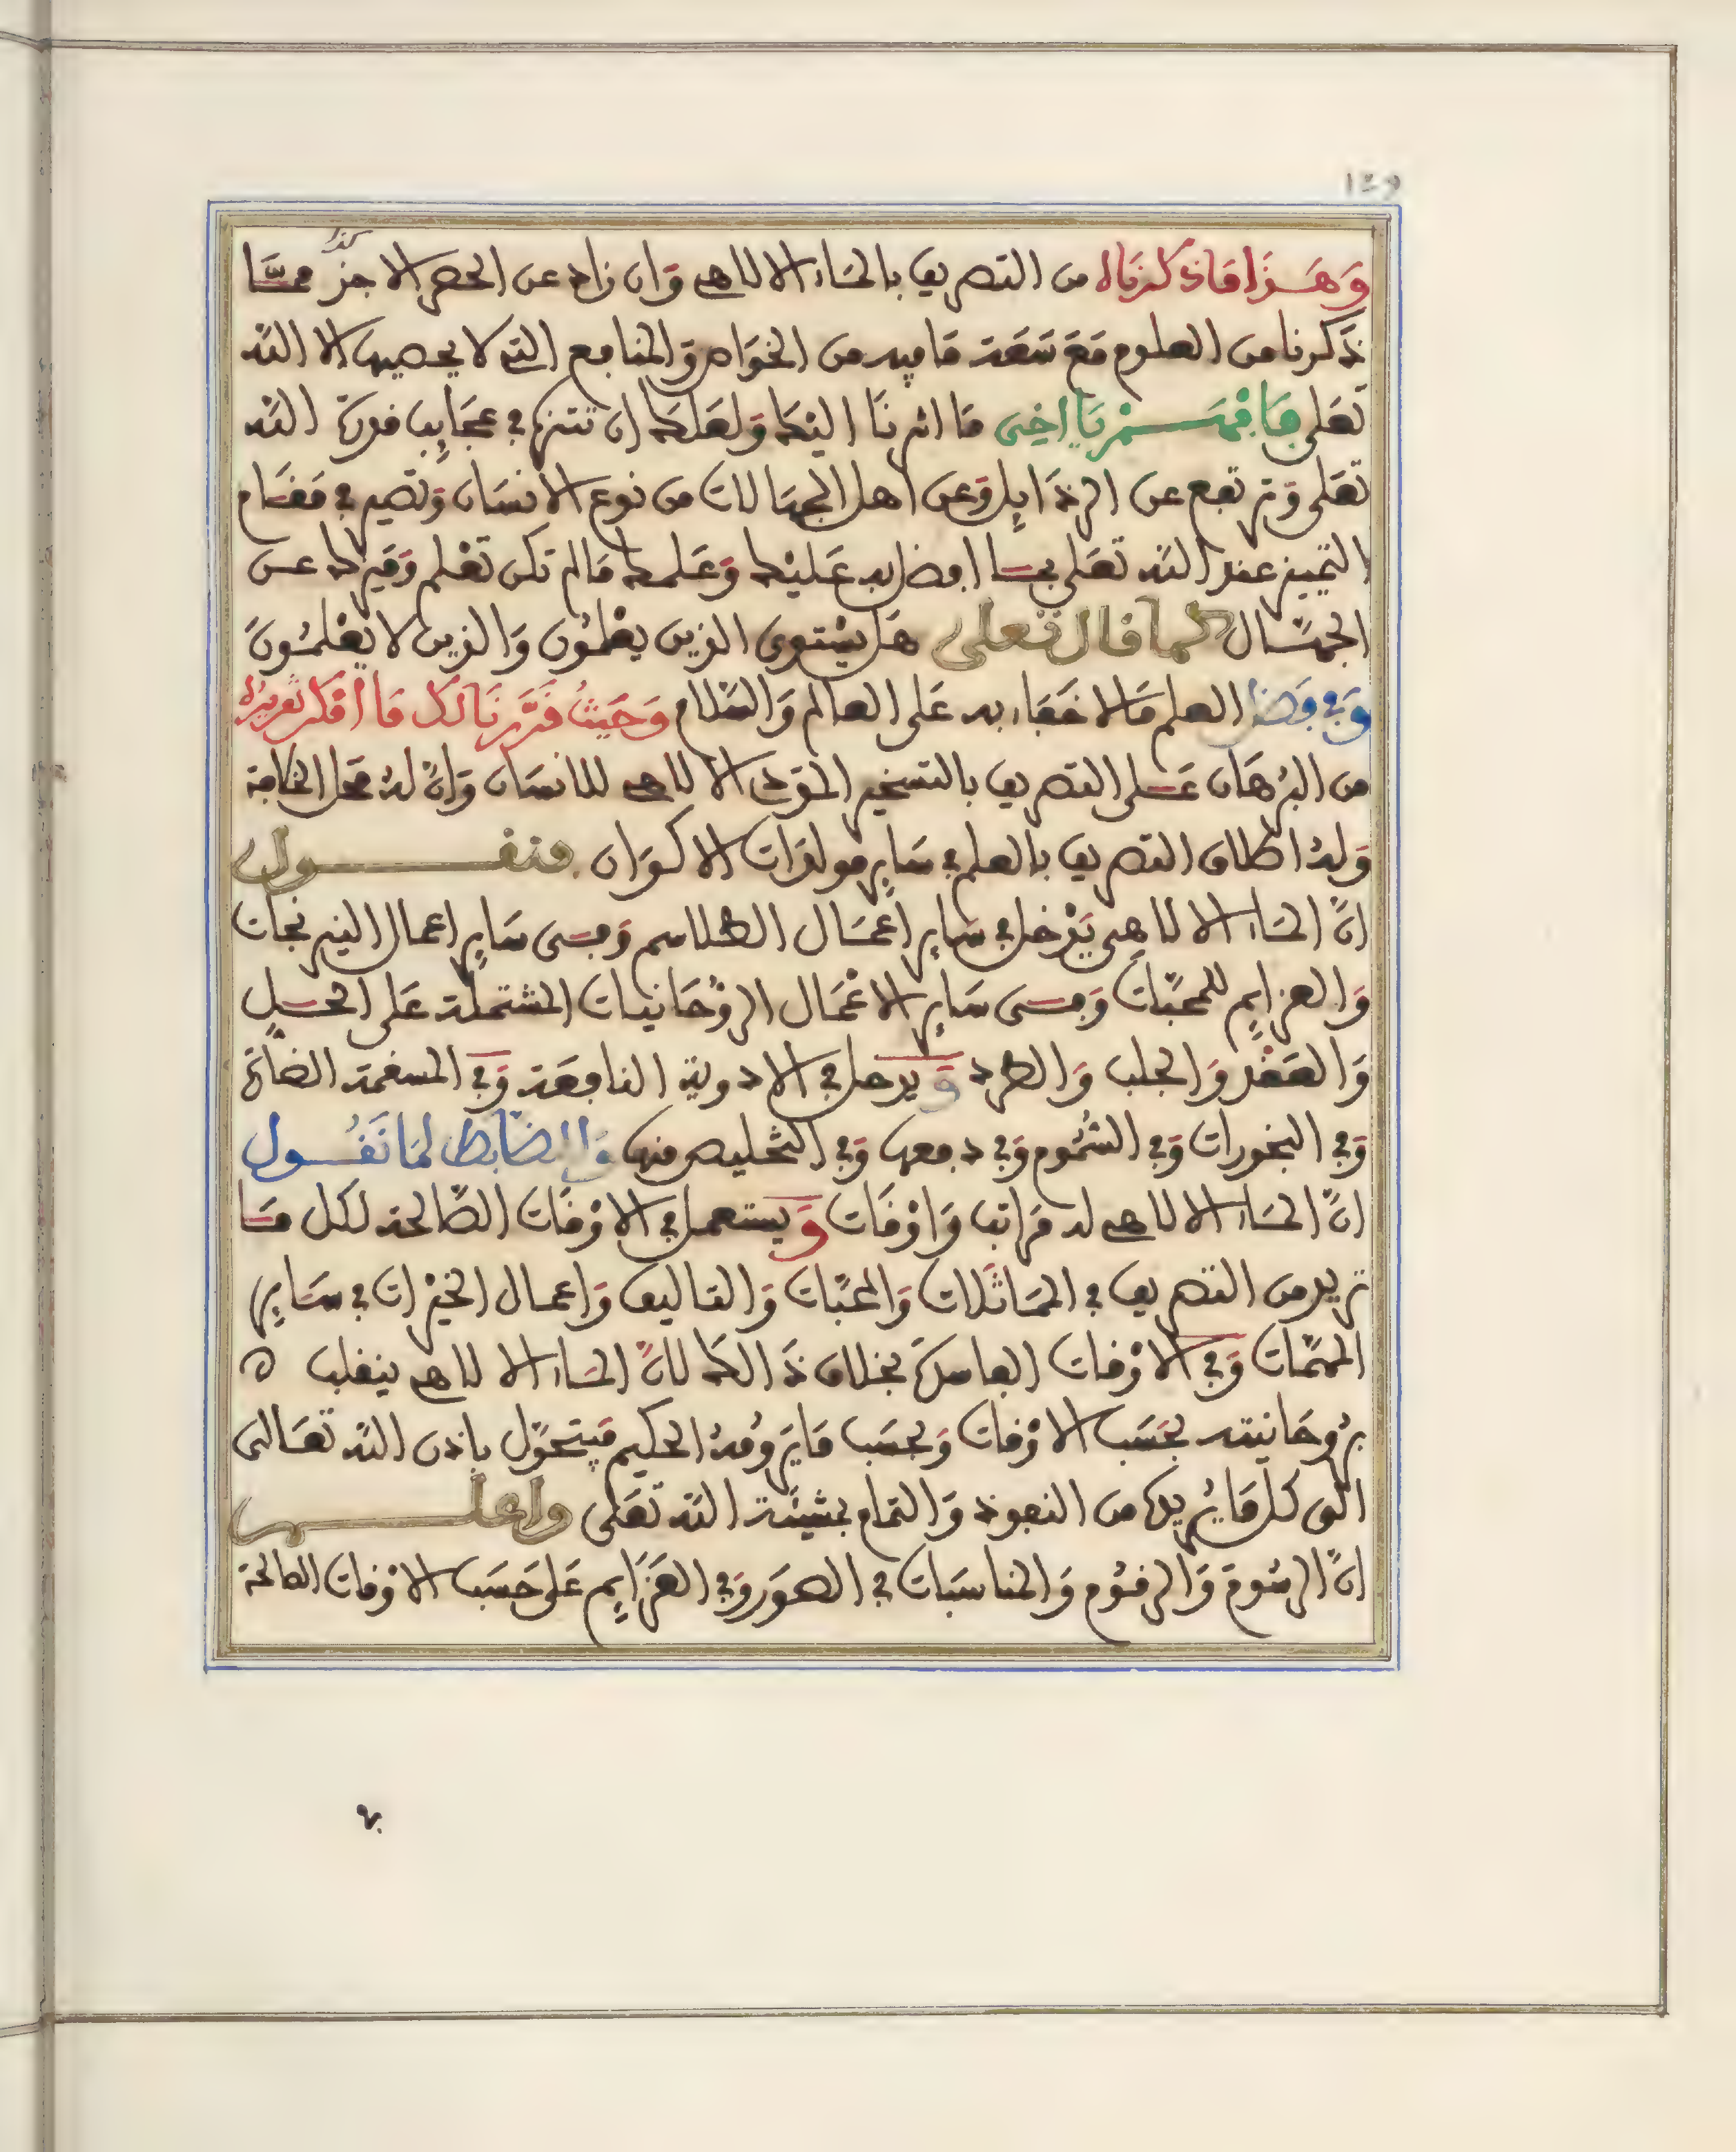 ١٤٩
كذا
وَهَذَا مَا ذكرنَاه من التصريف بالماء الالاهي وَان زاد عن الحصر الا جزء ممّا
ذكرنا من العلوم مَعَ سَعَة مَا فيه من الخوَاص وَالمنافع التي لا يحصيها الا الله
تَعَلى فَافْهَمْ يَا اخِى مَا اشرنَا اليْكَ وَلعَلكَ ان تتنزه في عجَايِب قدرة الله
تعَلى وَترتفع عن الرذَايِل وَعن اهل الجهَالات من نوع الانسَان وَتصير في مَقَام
التمييز عند الله تعَلى بمَا افضل به عَليْك وَعَلمك مَا لم تكن تعْلم وَميزك عن
الجهّال كما قال تعلى هَل يسْتوى الذين يعْلمُون وَالذين لا يعْلمُونَ
وَفي فضل العلم مَا لا خفَاء به عَلى العالم وَالسّلام وَحَيثُ قَرَّرنَا لك مَا أمْكن تقريرُه
من البُرهَان عَلى التصريف بالتسخير المودع الالاهي للانسَان وَانّ لهُ محل الخلافة
وَلهُ اطلاق التصريف بالعلم في سَايِر مولدَات الاكوَان فنقول
انّ المَاء الالاهِي يَدْخل في سَايِر اعْمَال الطلاسم وَفى سَايِر اعمال النيرنجات
وَالعزايِم للمحبّات وَفى سَايِر الاعْمَال الروْحَانيات المشتملة عَلى الحل
وَالعَقْد وَالجلب وَالطرد وَيدخل في الادوية النافعَة وَفي المسقمة الضارّة
وَفي البخورات وَفي السُّمُوم وَفي دفعها وَفي التخليص منها وَالضابط لمَا نَقُول
انّ المَاء الالاهي له مَراتب وَاوْقَات وَيستعمل في الاوْقَات الصَّالحة لكل مَا
تريد من التصريف في المماثَلات وَالمحبّات وَالتاليف وَاعمال الخيْرات في سَايِر
المهمّات وَفي الاوْقات الفاسدة بخلاف ذَالك لانّ المَاء الالاهي ينقلب ه
برُوحَانيته بحَسَب الاوْقات وَبحسَب مَا يَرومُهُ الحكيم فيتحوّل باذن الله تعَالى
الى كل مَا يُريدُه من النفوذ وَالتمام بمشيئَة الله تعَلى واعلم
انّ الرسُومَ وَالرقوُم وَالمناسَبات في الصوَر وَفي العَزَايِم عَلى حَسَب الاوْقات الصالحة